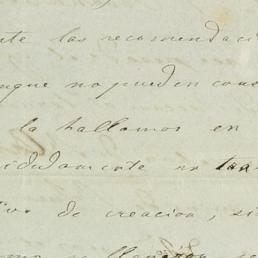 nte las recomendaci
unque no pueden cons
la hallamos en
didamente en
ivo de creacion, si